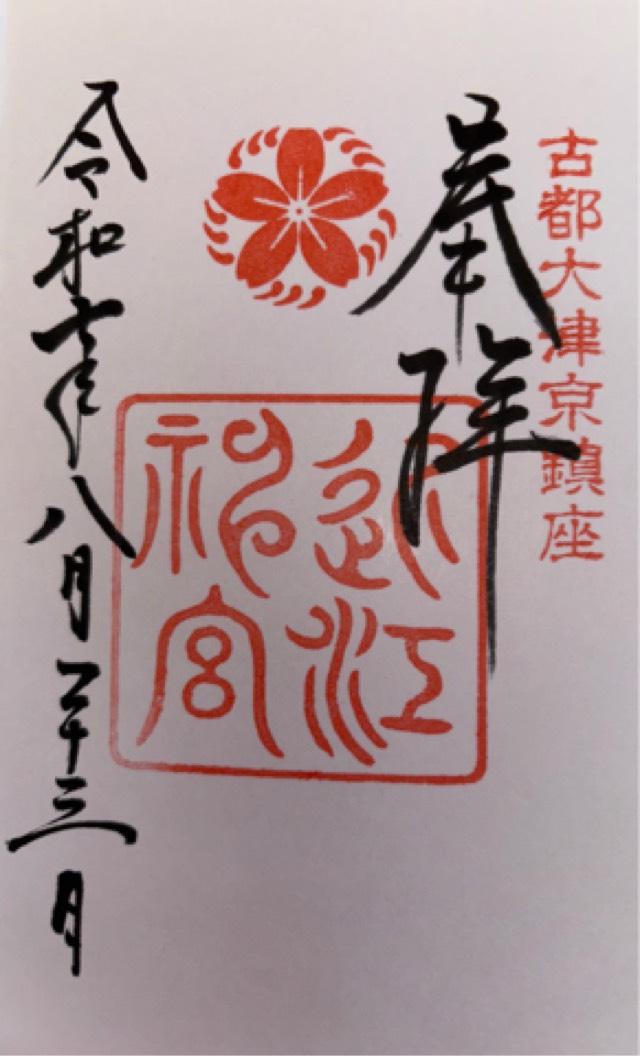 古都大津京鎮座
奉拝
近江
神宮
令和七年八月二十三日